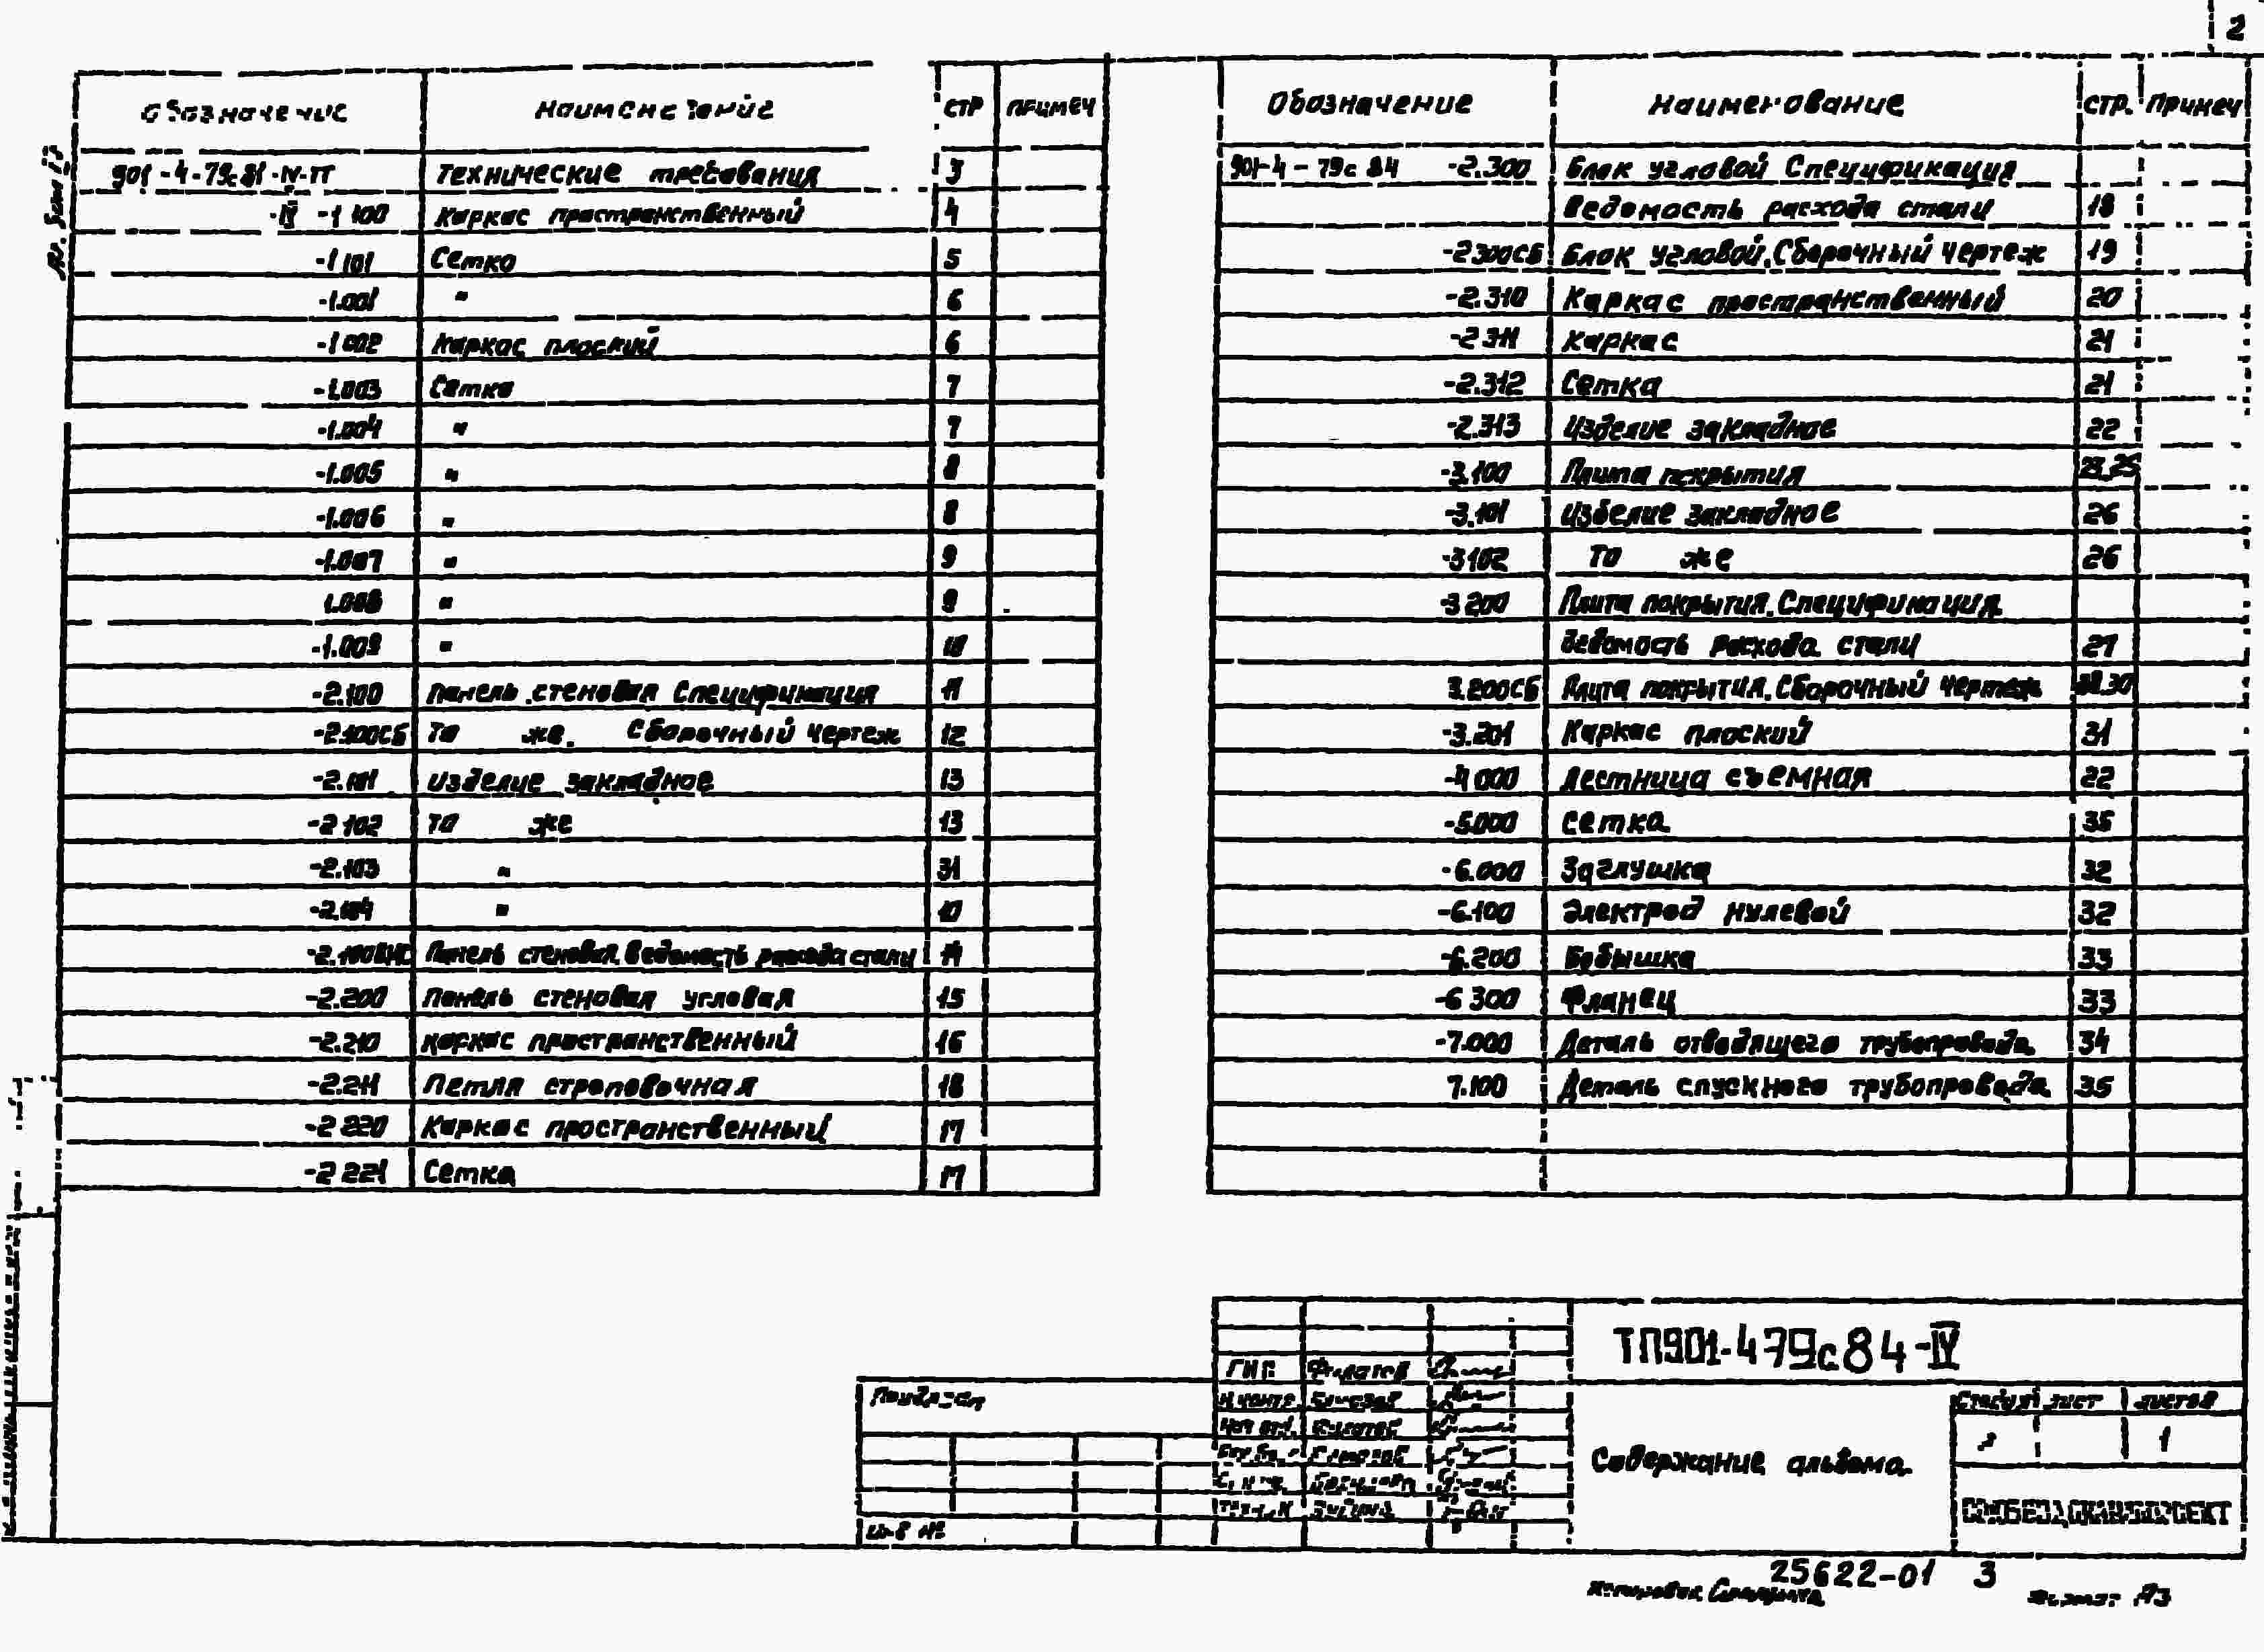 2
Обозначение Наименование стр примеч
901-4-79с84-IV-ТТ Технические требования 3
-IV -1 100 Каркас пространственный 4
-1 101 Сетка 5
-1.001 " 6
-1 002 Каркас плоский 6
-1.003 Сетка 7
-1.004 " 7
-1.005 " 8
-1.006 " 8
-1.007 " 9
1.008 " 9
-1.009 " 10
-2.100 Панель стеновая Спецификация 11
-2.100СБ То же. Сборочный чертеж 12
-2.101 Изделие закладное 13
-2 102 То же 13
-2.103 " 31
-2.104 " 10
Панель стеновая. Ведомость расхода стали 14
-2.200 Панель стеновая угловая 15
-2.210 Каркас пространственный 16
-2.211 Петля строповочная 18
-2 220 Каркас пространственный 17
-2 221 Сетка 17
Обозначение Наименование стр. Примеч
901-4-79с 84 -2.300 Блок угловой Спецификация
Ведомость расхода стали 18
-2300СБ Блок угловой. Сборочный чертеж 19
-2.310 Каркас пространственный 20
-2 311 Каркас 21
-2.312 Сетка 21
-2.313 Изделие закладное 22
-3.100 Плита покрытия 23,25
-3.101 Изделие закладное 26
-3102 То же 26
-3 200 Плита покрытия. Спецификация.
Ведомость расхода стали 27
3.200СБ Плита покрытия. Сборочный чертеж
-3.201 Каркас плоский 31
-4 000 Лестница съемная 22
-5.000 Сетка 35
-6.000 Заглушка 32
-6.100 Электрод нулевой 32
-6.200 Бобышка 33
-6 300 Фланец 33
-7.000 Деталь отводящего трубопровода 34
7.100 Деталь спускного трубопровода 35
ТП901-479с84-IV
ГИП Филатов
Н.контр.
Нач отд. Филатов
Привязан
Инв №
Содержание альбома
Стадия лист листов
1
25622-01 3
Копировал
Формат А3